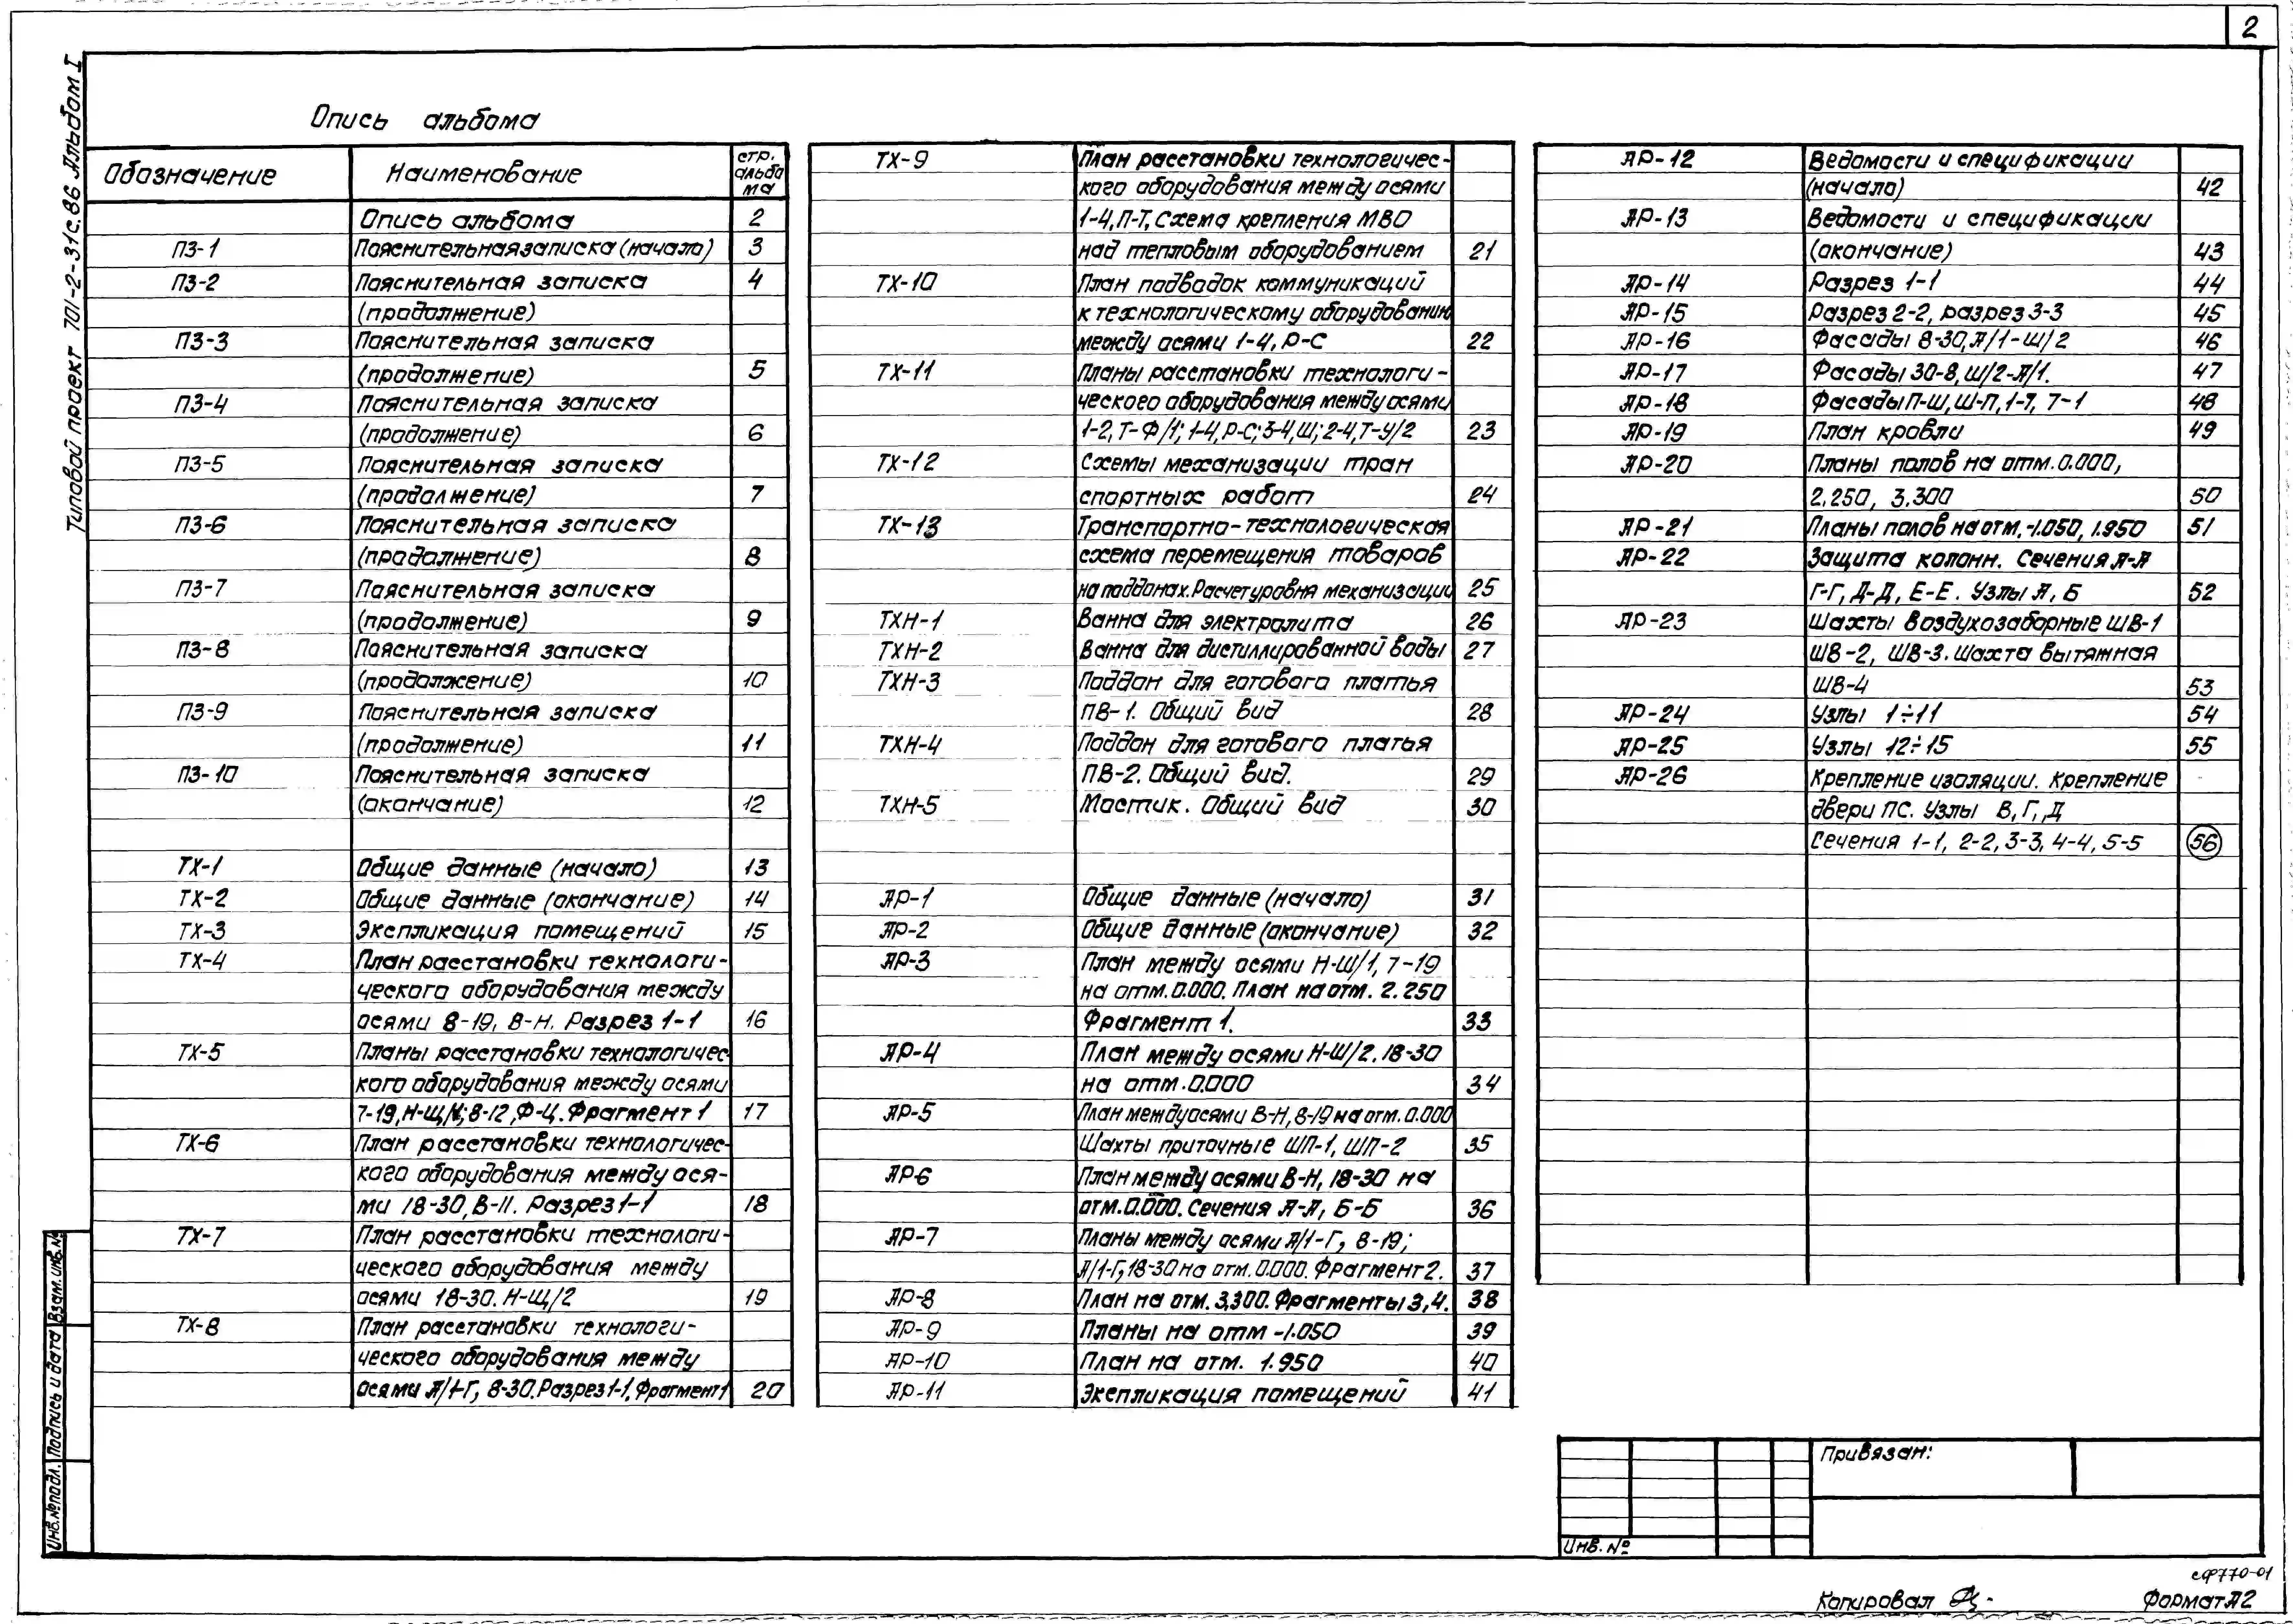 2
Типовой проект 701-2-31с.86 Альбом I
Опись альбома
Обозначение Наименование стр. альбо ма
Опись альбома 2
ПЗ-1 Пояснительная записка (начало) 3
ПЗ-2 Пояснительная записка 4
(продолжение)
ПЗ-3 Пояснительная записка
(продолжение) 5
ПЗ-4 Пояснительная записка
(продолжение) 6
ПЗ-5 Пояснительная записка
(продолжение) 7
ПЗ-6 Пояснительная записка
(продолжение) 8
ПЗ-7 Пояснительная записка
(продолжение) 9
ПЗ-8 Пояснительная записка
(продолжение) 10
ПЗ-9 Пояснительная записка
(продолжение) 11
ПЗ-10 Пояснительная записка
(окончание) 12
ТХ-1 Общие данные (начало) 13
ТХ-2 Общие данные (окончание) 14
ТХ-3 Экспликация помещений 15
ТХ-4 План расстановки технологи-
ческого оборудования между
осями 8-19, В-Н. Разрез 1-1 16
ТХ-5 Планы расстановки технологичес-
кого оборудования между осями
7-19, Н-Щ/1; 8-12, Ф-Ц. Фрагмент 1 17
ТХ-6 План расстановки технологичес-
кого оборудования между ося-
ми 18-30, В-П. Разрез 1-1 18
ТХ-7 План расстановки технологи-
ческого оборудования между
осями 18-30. Н-Щ/2 19
ТХ-8 План расстановки технологи-
ческого оборудования между
осями А/1-Г, 8-30. Разрез 1-1. Фрагмент 1 20
ТХ-9 План расстановки технологичес-
кого оборудования между осями
1-4, П-Т, Схема крепления МВО
над тепловым оборудованием 21
ТХ-10 План подводок коммуникаций
к технологическому оборудованию
между осями 1-4, Р-С 22
ТХ-11 Планы расстановки технологи-
ческого оборудования между осями
1-2, Т-Ф/1; 1-4, Р-С; 3-4, Ш; 2-4, Т-У/2 23
ТХ-12 Схемы механизации тран
спортных работ 24
ТХ-13 Транспортно-технологическая
схема перемещения товаров
на поддонах. Расчет уровня механизации 25
ТХН-1 Ванна для электролита 26
ТХН-2 Ванна для дистиллированной воды 27
ТХН-3 Поддон для готового платья
ПВ-1. Общий вид 28
ТХН-4 Поддон для готового платья
ПВ-2. Общий вид. 29
ТХН-5 Мостик. Общий вид 30
АР-1 Общие данные (начало) 31
АР-2 Общие данные (окончание) 32
АР-3 План между осями Н-Ш/1, 7-19
на отм. 0.000. План на отм. 2.250
Фрагмент 1. 33
АР-4 План между осями Н-Ш/2. 18-30
на отм. 0.000 34
АР-5 План между осями В-Н, 8-19 на отм. 0.000
Шахты приточные ШП-1, ШП-2 35
АР6 План между осями В-Н, 18-30 на
отм. 0.000. Сечения А-А, Б-Б 36
АР-7 Планы между осями А/1-Г, 8-19;
А/1-Г, 18-30 на отм. 0.000. Фрагмент 2. 37
АР-8 План на отм. 3.300. Фрагменты 3, 4. 38
АР-9 Планы на отм -1.050 39
АР-10 План на отм. 1.950 40
АР-11 Экспликация помещений 41
АР-12 Ведомости и спецификации
(начало) 42
АР-13 Ведомости и спецификации
(окончание) 43
АР-14 Разрез 1-1 44
АР-15 Разрез 2-2, разрез 3-3 45
АР-16 Фасады 8-30, А/1-Ш/2 46
АР-17 Фасады 30-8, Ш/2-А/1. 47
АР-18 Фасады П-Ш, Ш-П, 1-7, 7-1 48
АР-19 План кровли 49
АР-20 Планы полов на отм. 0.000,
2.250, 3.300 50
АР-21 Планы полов на отм. -1.050, 1.950 51
АР-22 Защита колонн. Сечения А-А
Г-Г, Д-Д, Е-Е. Узлы А, Б 52
АР-23 Шахты воздухозаборные ШВ-1
ШВ-2, ШВ-3. Шахта вытяжная
ШВ-4 53
АР-24 Узлы 1÷11 54
АР-25 Узлы 12÷15 55
АР-26 Крепление изоляции. Крепление
двери ПС. Узлы В, Г, Д
Сечения 1-1, 2-2, 3-3, 4-4, 5-5 56
Инв. № подл. Подпись и дата Взам. инв. №
Привязан:
Инв. №
СФ770-01
Копировал
Формат А2